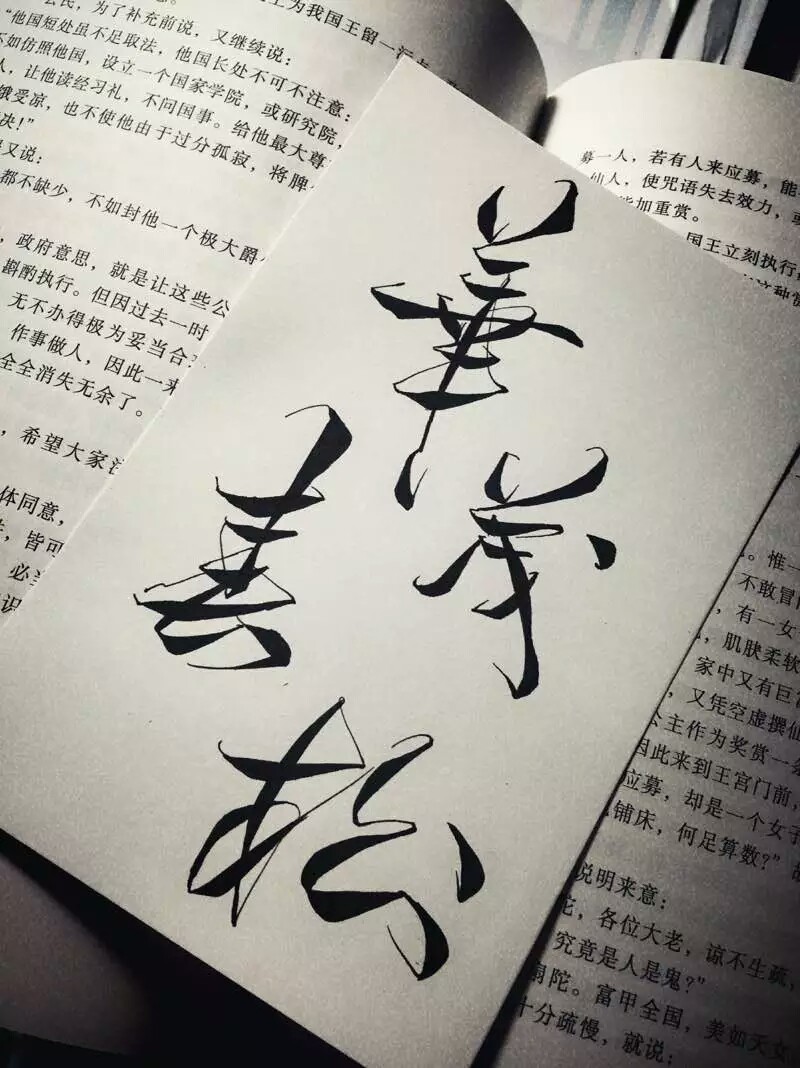 公民,为了补充前说,又继续说:
“他国短处虽不足取法,他国长处不可不注意:
不如仿照他国,设立一个国家学院,或研究院,
人,让他读经习礼,不问国事。给他最大尊
饿受凉,也不使他由于过分孤寂,将脾
决!”
又说:
都不缺少,不如封他一个极大爵
,政府意思,就是让这些公
斟酌执行。但因过去一时
无不办得极为妥当合
作事做人,因此一来
全全消失无余了。
,希望大家
体同意,
皆可
必
识
为我国王留一
華茂
春松
募一人,若有人来应募,能
仙人,使咒语失去效力,
加重赏。
国王立刻执行
。惟一
不敢冒
有一女
,肌肤柔软
家中又有巨
,又凭空虚撰仙
公主作为奖赏一
因此来到王宫门前,
应募,却是一个女子
铺床,何足算数?”
说明来意:
陀,各位大老,谅不生疏,
究竟是人是鬼?”
扇陀。富甲全国,美如天女
十分疏慢,就说: